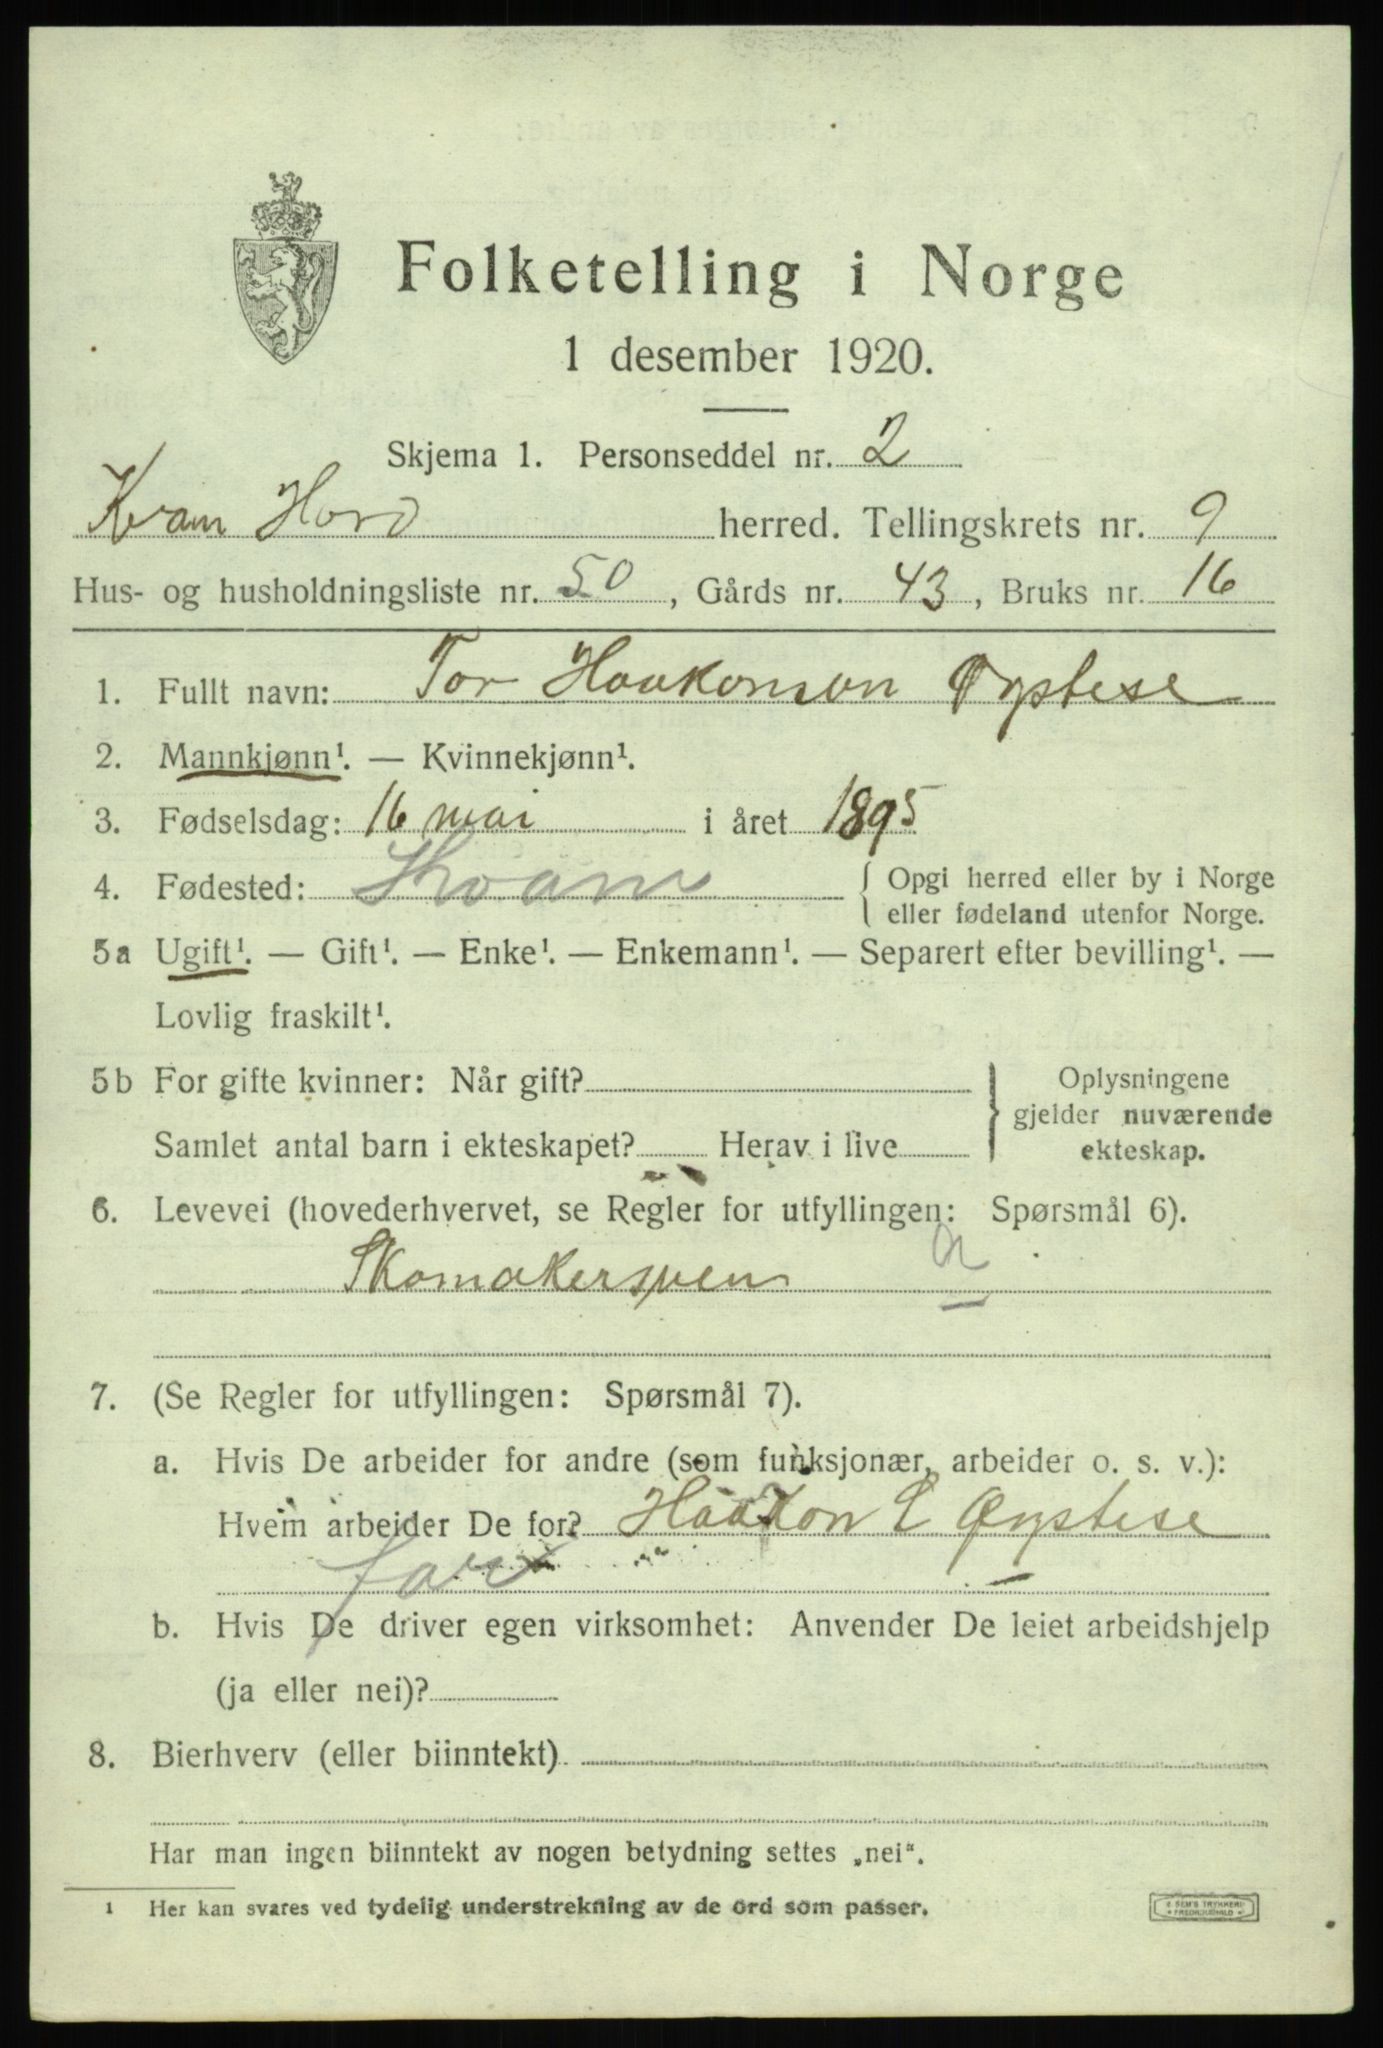 Folketelling i Norge
1 desember 1920.
Skjema 1. Personseddel nr. 2
Kvam Hord herred. Tellingskrets nr. 9
Hus- og husholdningsliste nr. 50, Gårds nr. 43, Bruks nr. 16
1. Fullt navn: Tor Haakonson Øystese
2. Mannkjønn¹. — Kvinnekjønn¹.
3. Fødselsdag: 16 mai i året 1895
4. Fødested: Kvam { Opgi herred eller by i Norge
eller fødeland utenfor Norge.
5a Ugift¹. — Gift¹. — Enke¹. — Enkemann¹. — Separert efter bevilling¹. —
Lovlig fraskilt¹.
5b For gifte kvinner: Når gift? } Oplysningene
gjelder nuværende
Samlet antal barn i ekteskapet? Herav i live ekteskap.
6. Levevei (hovederhvervet, se Regler for utfyllingen: Spørsmål 6).
Skomakersven a
7. (Se Regler for utfyllingen: Spørsmål 7).
a. Hvis De arbeider for andre (som funksjonær, arbeider o. s. v.):
Hvem arbeider De for? Haakon L Øystese
far
b. Hvis De driver egen virksomhet: Anvender De leiet arbeidshjelp
(ja eller nei)?
8. Bierhverv (eller biinntekt)
Har man ingen biinntekt av nogen betydning settes „nei“.
1 Her kan svares ved tydelig understrekning av de ord som passer.
SEM'S TRYKKERI
FREDRIKSHALD